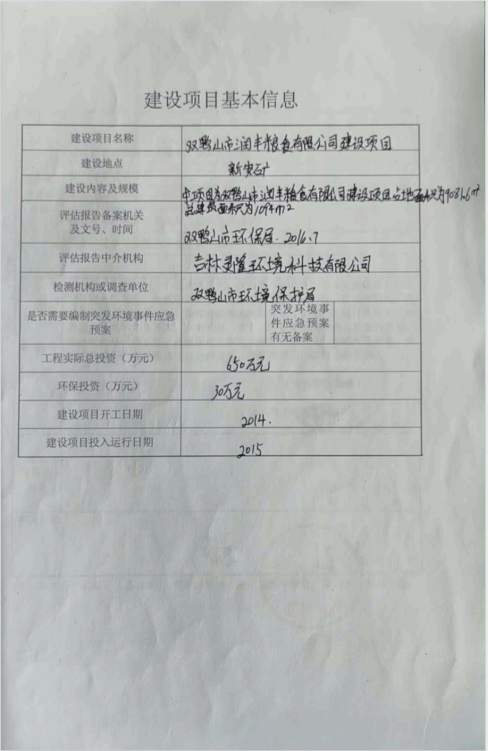 建设项目基本信息
建设项目名称
双鸭山市润丰粮食有限公司建设项目
建设地点
新安矿
建设内容及规模
本项目为双鸭山市润丰粮食有限公司建设项目占地面积为9081.6m²
总建筑面积为1094m²
评估报告备案机关
及文号、时间
双鸭山市环保局. 2016.7
评估报告中介机构
吉林 环境科技有限公司
检测机构或调查单位
双鸭山市环境保护局
是否需要编制突发环境事件应急
预案
突发环境事
件应急预案
有无备案
工程实际总投资（万元）
650万元
环保投资（万元）
30万元
建设项目开工日期
2014.
建设项目投入运行日期
2015